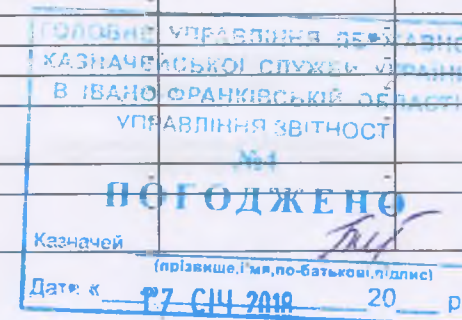 ГОЛОВНЕ УПРАВЛІННЯ ДЕРЖАВНО
КАЗНАЧЕЙСЬКОЇ СЛУЖБИ УКРАЇН
В ІВАНО-ФРАНКІВСЬКІЙ ОБЛАСТІ
УПРАВЛІННЯ ЗВІТНОСТІ
№1
ПОГОДЖЕНО
Казначей
(прізвище,ім'я,по-батькові,підпис)
Дата « 17 СІЧ 2018 20 р